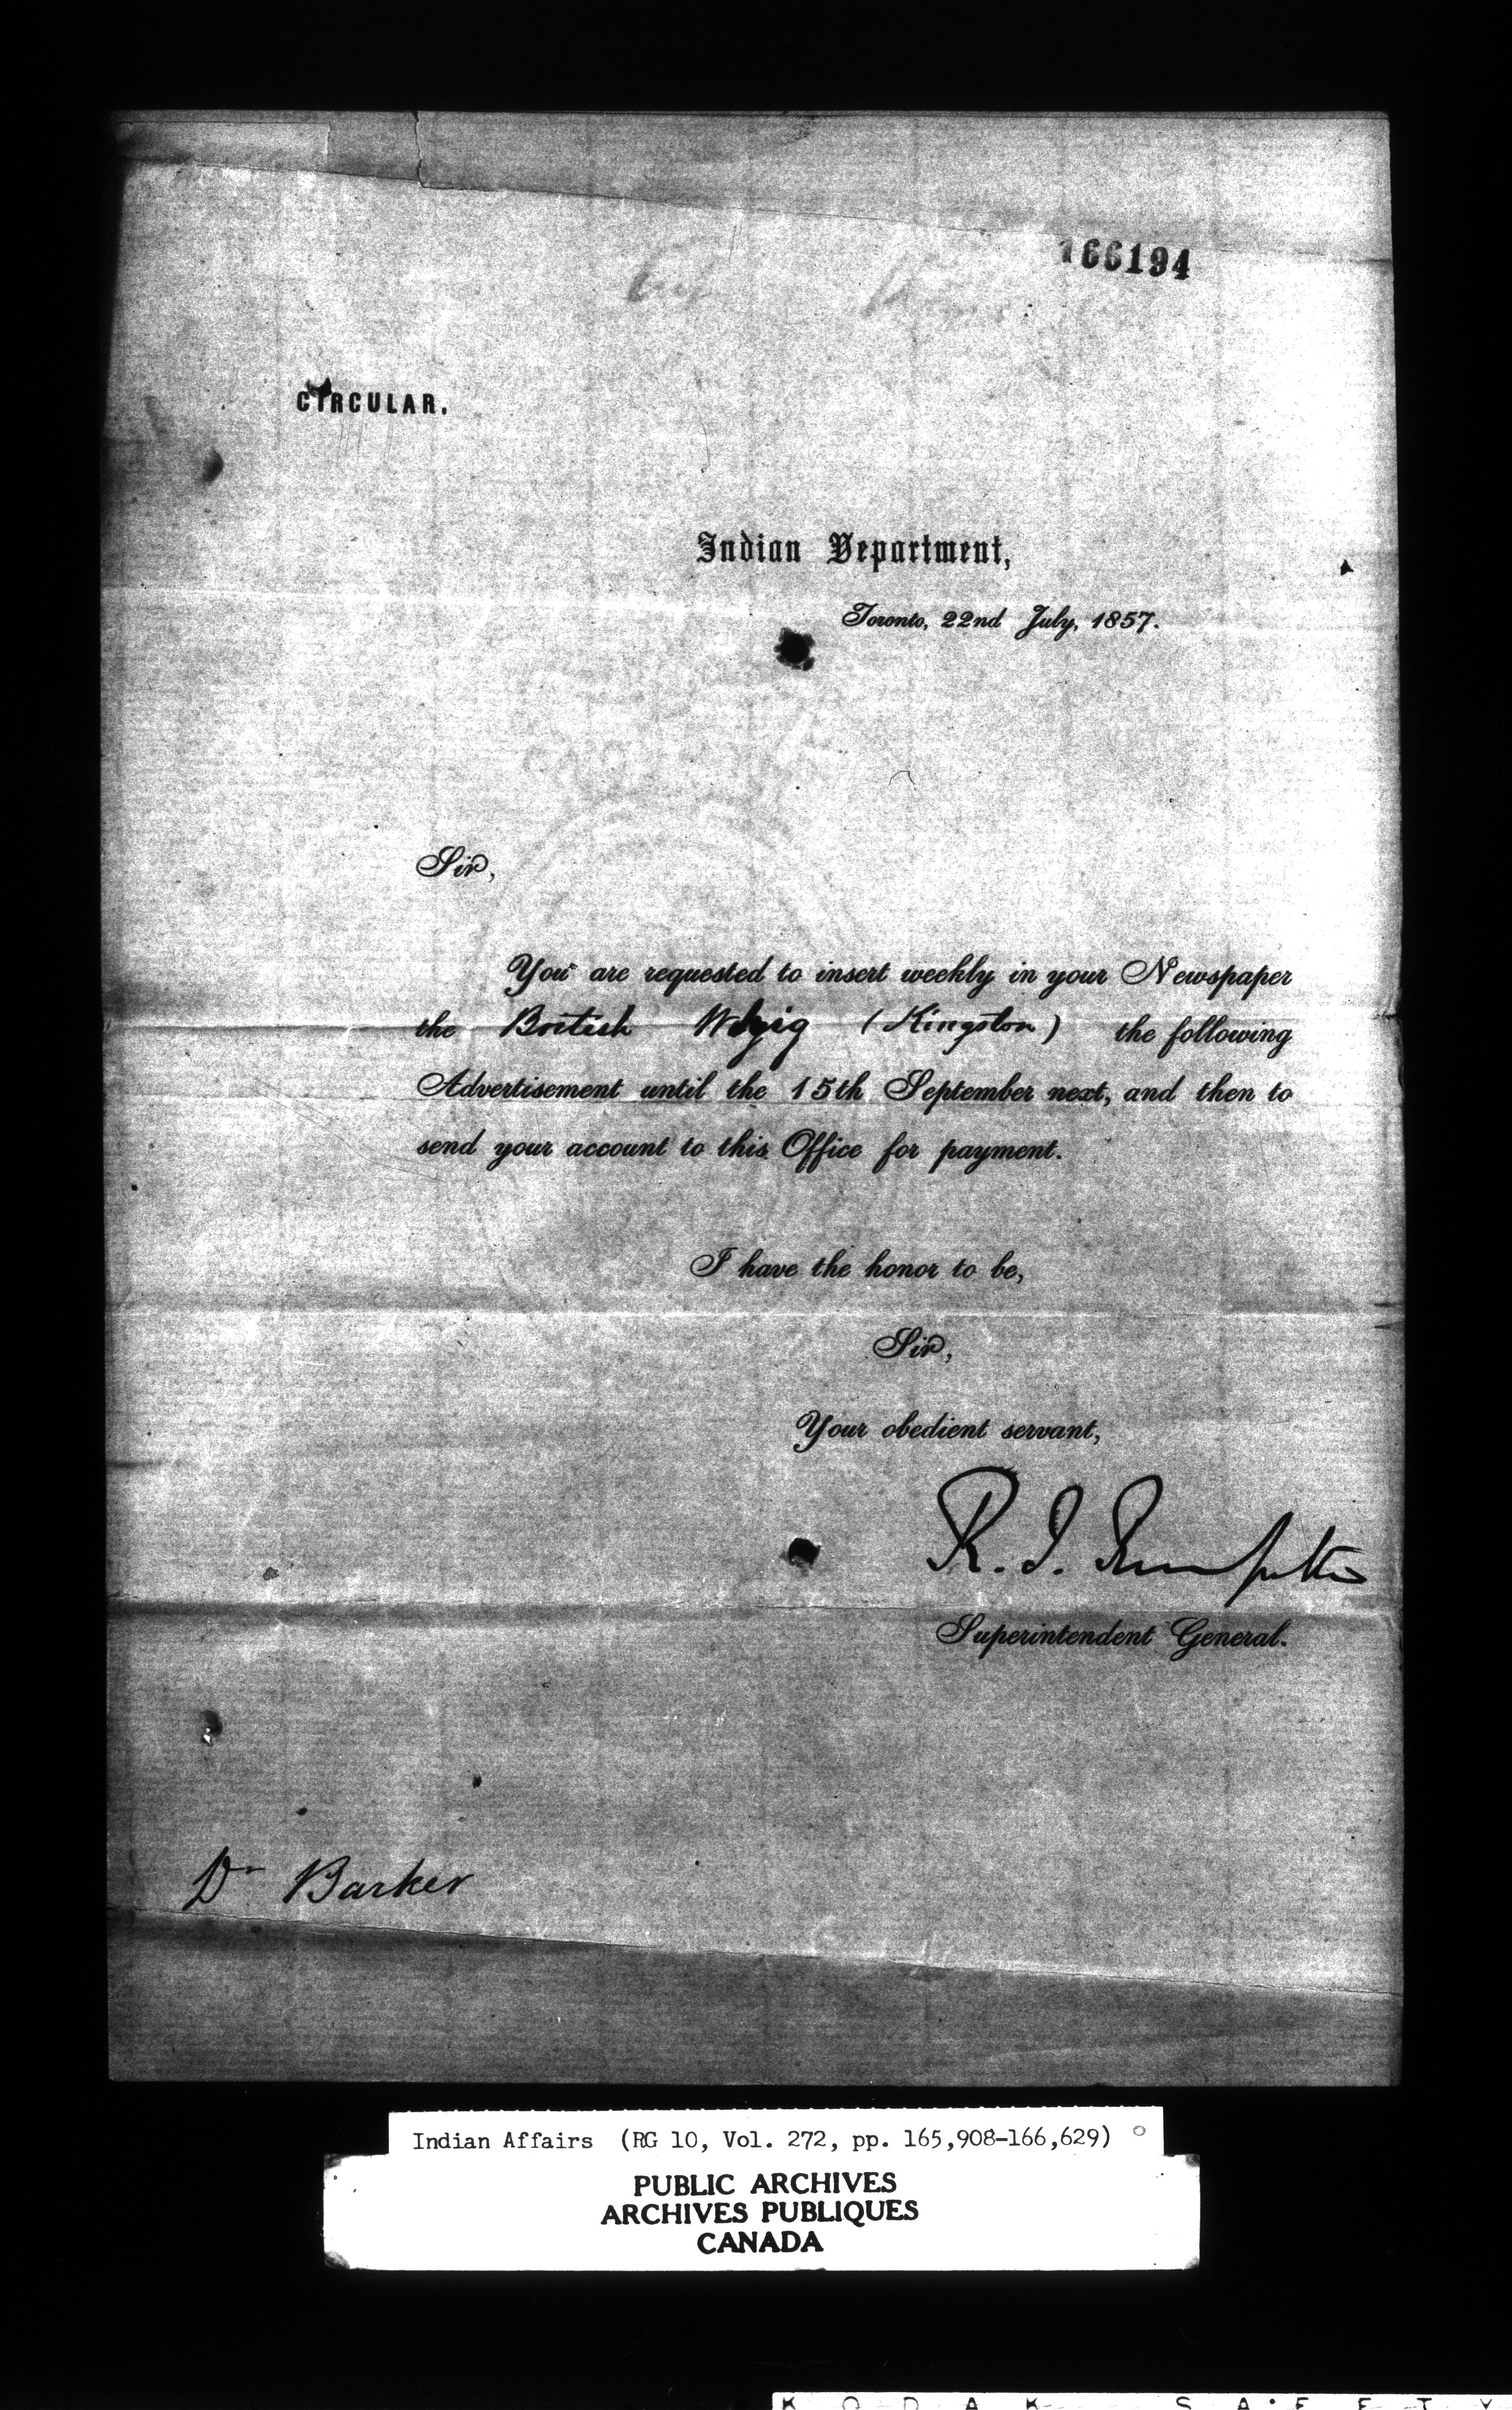 166194
CIRCULAR.
Indian Department,
Toronto, 22nd July, 1857.
Sir,
You are requested to insert weekly in your Newspaper
the British Whig (Kingston) the following
Advertisement until the 15th September next, and then to
send your account to this Office for payment.
I have the honor to be,
Sir,
Your obedient servant,
R. T.
Superintendent General.
Dr Barker
Indian Affairs (RG 10, Vol. 272, pp. 165,908-166,629)
PUBLIC ARCHIVES
ARCHIVES PUBLIQUES
CANADA
KODAK SAFETY